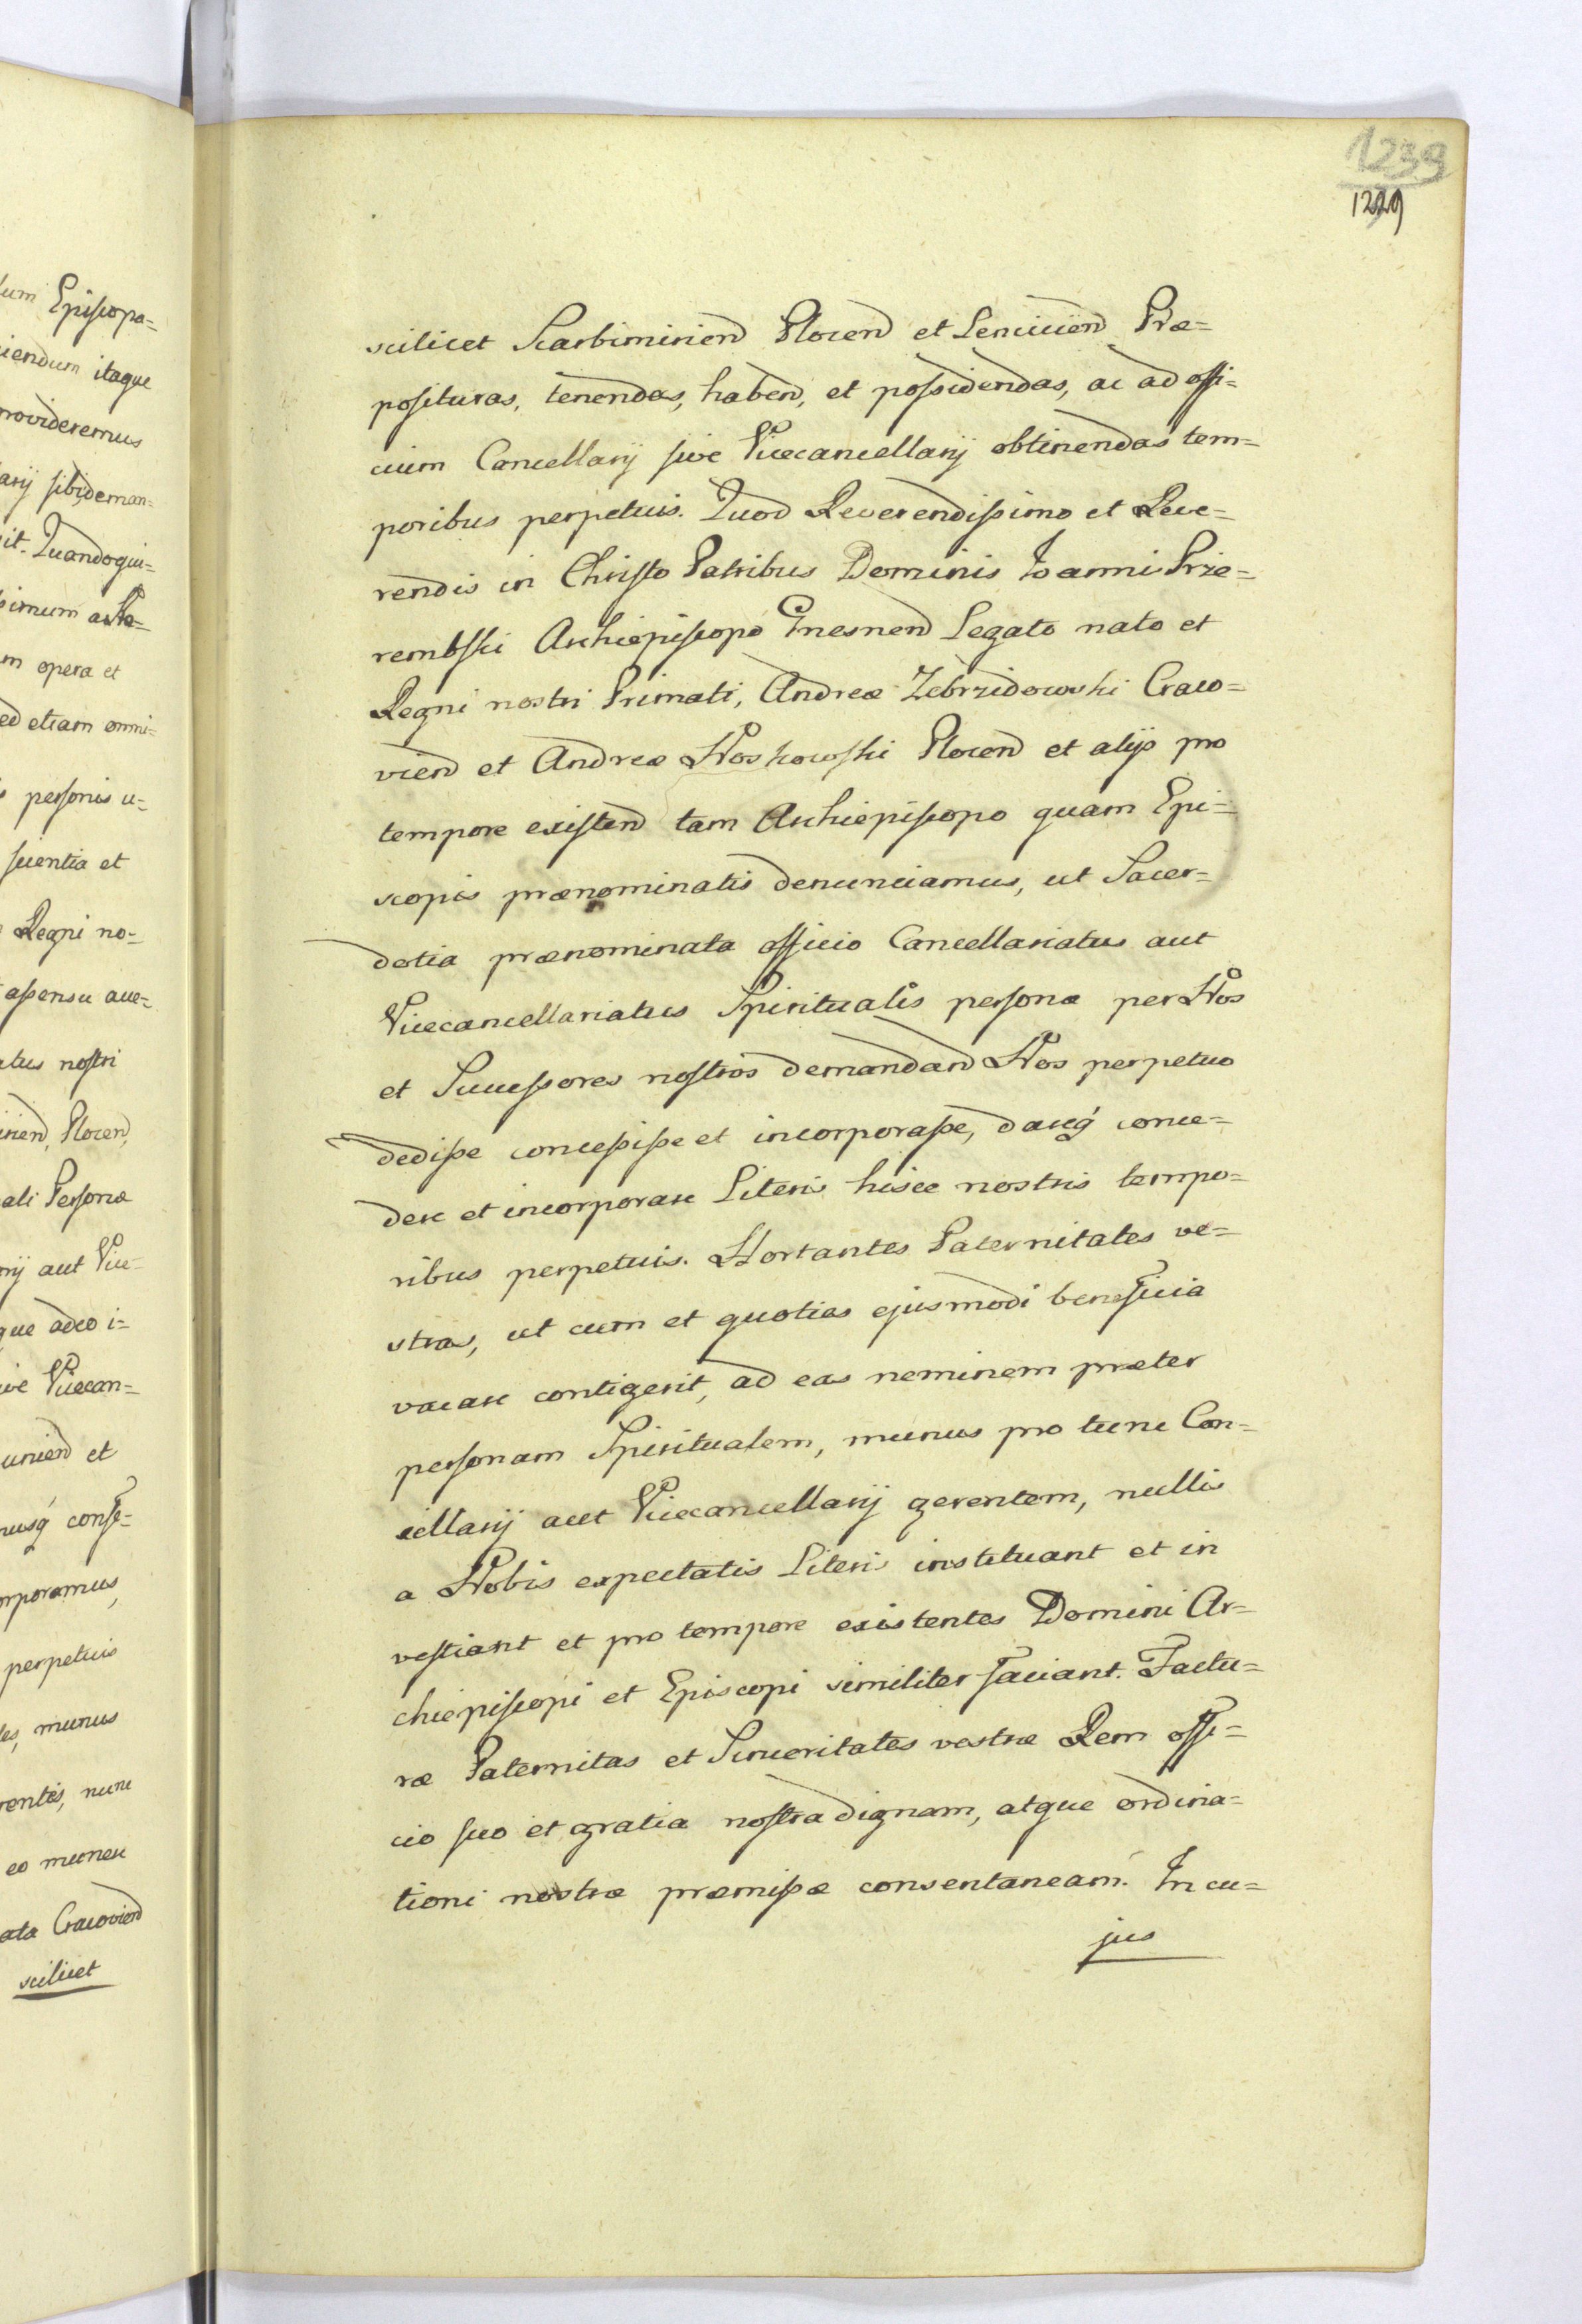 1239
1229
scilicet Scarbimirien Plocen et Lenicien Præ=
posituras, tenendas, haben, et possidendas, ac ad offi=
cium Cancellarij sive Vicecancellarij obtinendas tem=
poribus perpetuis. Quod Reverendissimo et Reve=
rendis in Christo Patribus Dominis Ioanni Prze=
rembski Archiepiscopo Gnesnen Legato nato et
Regni nostri Primati, Andreæ Zebrzidowski Craco=
vien et Andreæ Noskowski Plocen et alijs pro
tempore existen tam Archiepiscopo quam Epi=
scopis prænominatis denunciamus, ut Sacer=
dotia prænominata officio Cancellariatus aut
Vicecancellariatus Spiritualis personæ per Nos
et Successores nostros demandan Nos perpetuo
dedisse concessisse et incorporasse, dareq́ conce=
dere et incorporare Literis hisce nostris tempo=
ribus perpetuis. Hortantes Paternitates ve=
stras, ut cum et quoties ejusmodi beneficia
vacare contigerit, ad eas neminem præter
personam Spiritualem, munus pro tunc Can=
cellarij aut Vicecancellarij gerentem, nullis
a Nobis expectatis Literis instituant et in
vestiant et pro tempore existentes Domini Ar=
chiepiscopi et Episcopi similiter faciant. Factu=
ræ Paternitas et Sinceritates vestræ Rem offi=
cio suo et gratia nostra dignam, atque ordina=
tioni nostræ præmissæ consentaneam. In cu=
jus
Episcopa=
itaque
provideremus
sibi deman=
Quandoqui=
opera et
etiam omni=
personis u=
scientia et
Regni no=
assensu ave=
nostri
Plocen,
Personæ
aut Vice=
que adeo i=
Vicecan=
et
conse=
perpetuis
munus
nunc
eo munere
Cracovien
scilicet